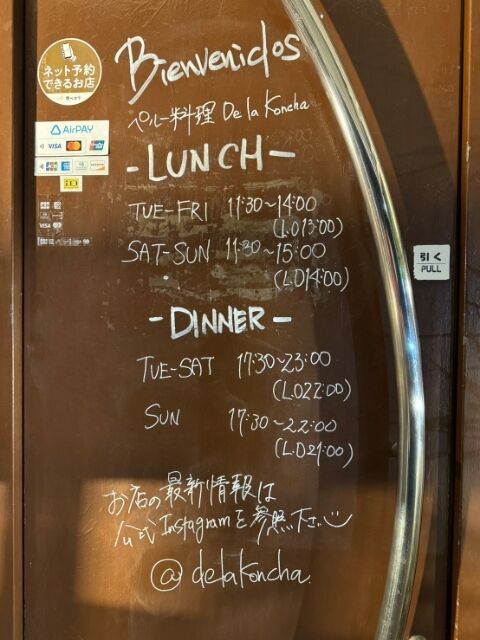 ネット予約
できるお店
Bienvenidos
ペルー料理 De la Koncha
AirPAY
VISA
- LUNCH -
iD
TUE-FRI 11:30~14:00
(L.O13:00)
SAT-SUN 11:30~15:00
(L.O14:00)
引く
PULL
- DINNER -
TUE-SAT 17:30~23:00
(L.O22:00)
SUN 17:30~22:00
(L.O21:00)
お店の最新情報は
公式Instagramを参照下さい
@delakoncha.